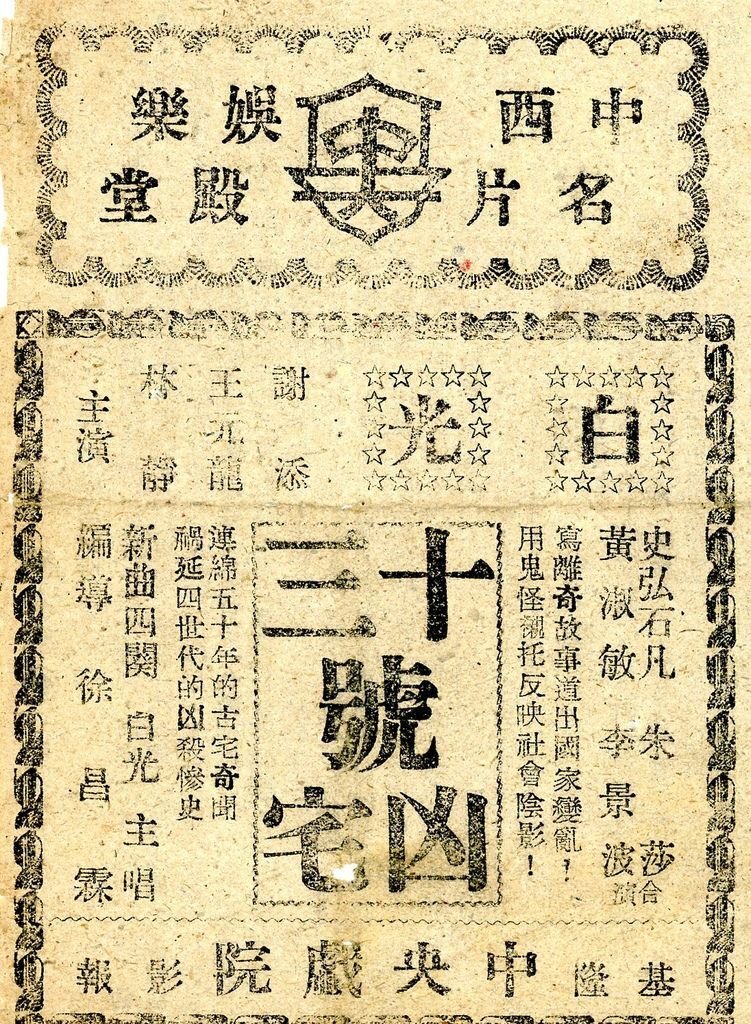 中西
名片
娛樂
殿堂
白光
謝添
王元龍
林靜
主演
史弘 石凡 朱莎
黃淑敏 李景波
合演
寫離奇故事道出國家變亂！
用鬼怪襯托反映社會陰影！
十三
號
凶宅
連綿五十年的古宅奇聞
禍延四世代的凶殺慘史
新曲四闋 白光主唱
編導 徐昌霖
基隆中央戲院影報